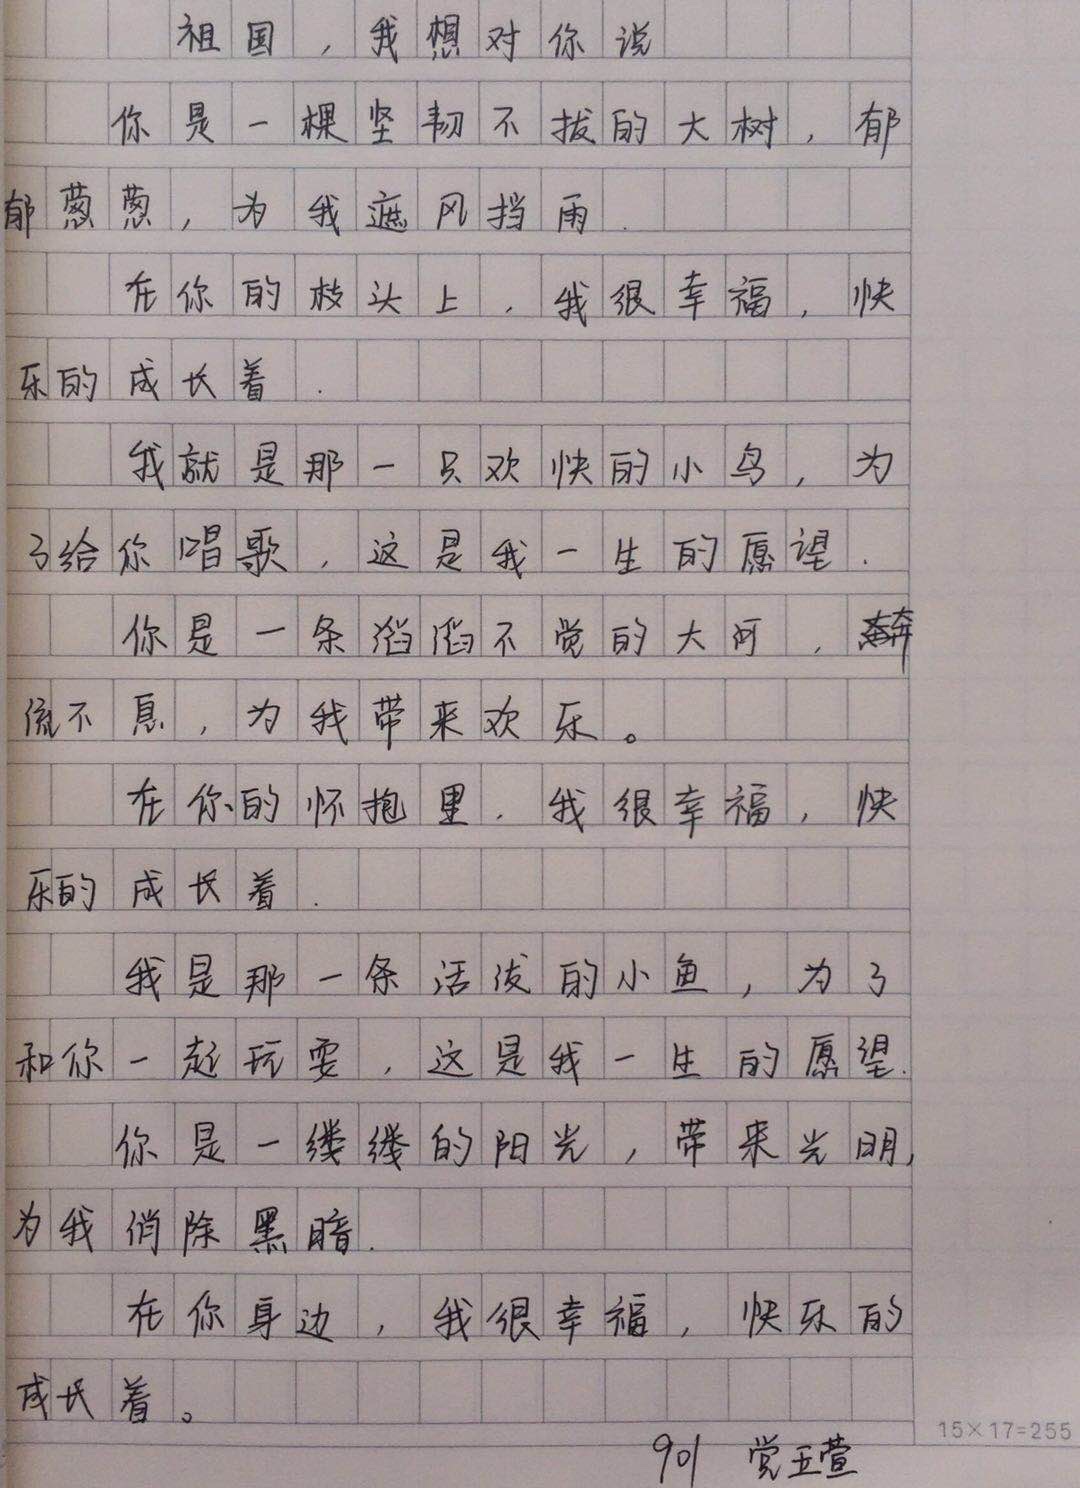 祖国，我想对你说
你是一棵坚韧不拔的大树，郁
郁葱葱，为我遮风挡雨.
在你的枝头上，我很幸福，快
乐的成长着.
我就是那一只欢快的小鸟，为
了给你唱歌，这是我一生的愿望.
你是一条滔滔不觉的大河，奔
流不息，为我带来欢乐。
在你的怀抱里，我很幸福，快
乐的成长着.
我是那一条活泼的小鱼，为了
和你一起玩耍，这是我一生的愿望.
你是一缕缕的阳光，带来光明，
为我消除黑暗.
在你身边，我很幸福，快乐的
成长着。
901 党玉萱
15×17=255